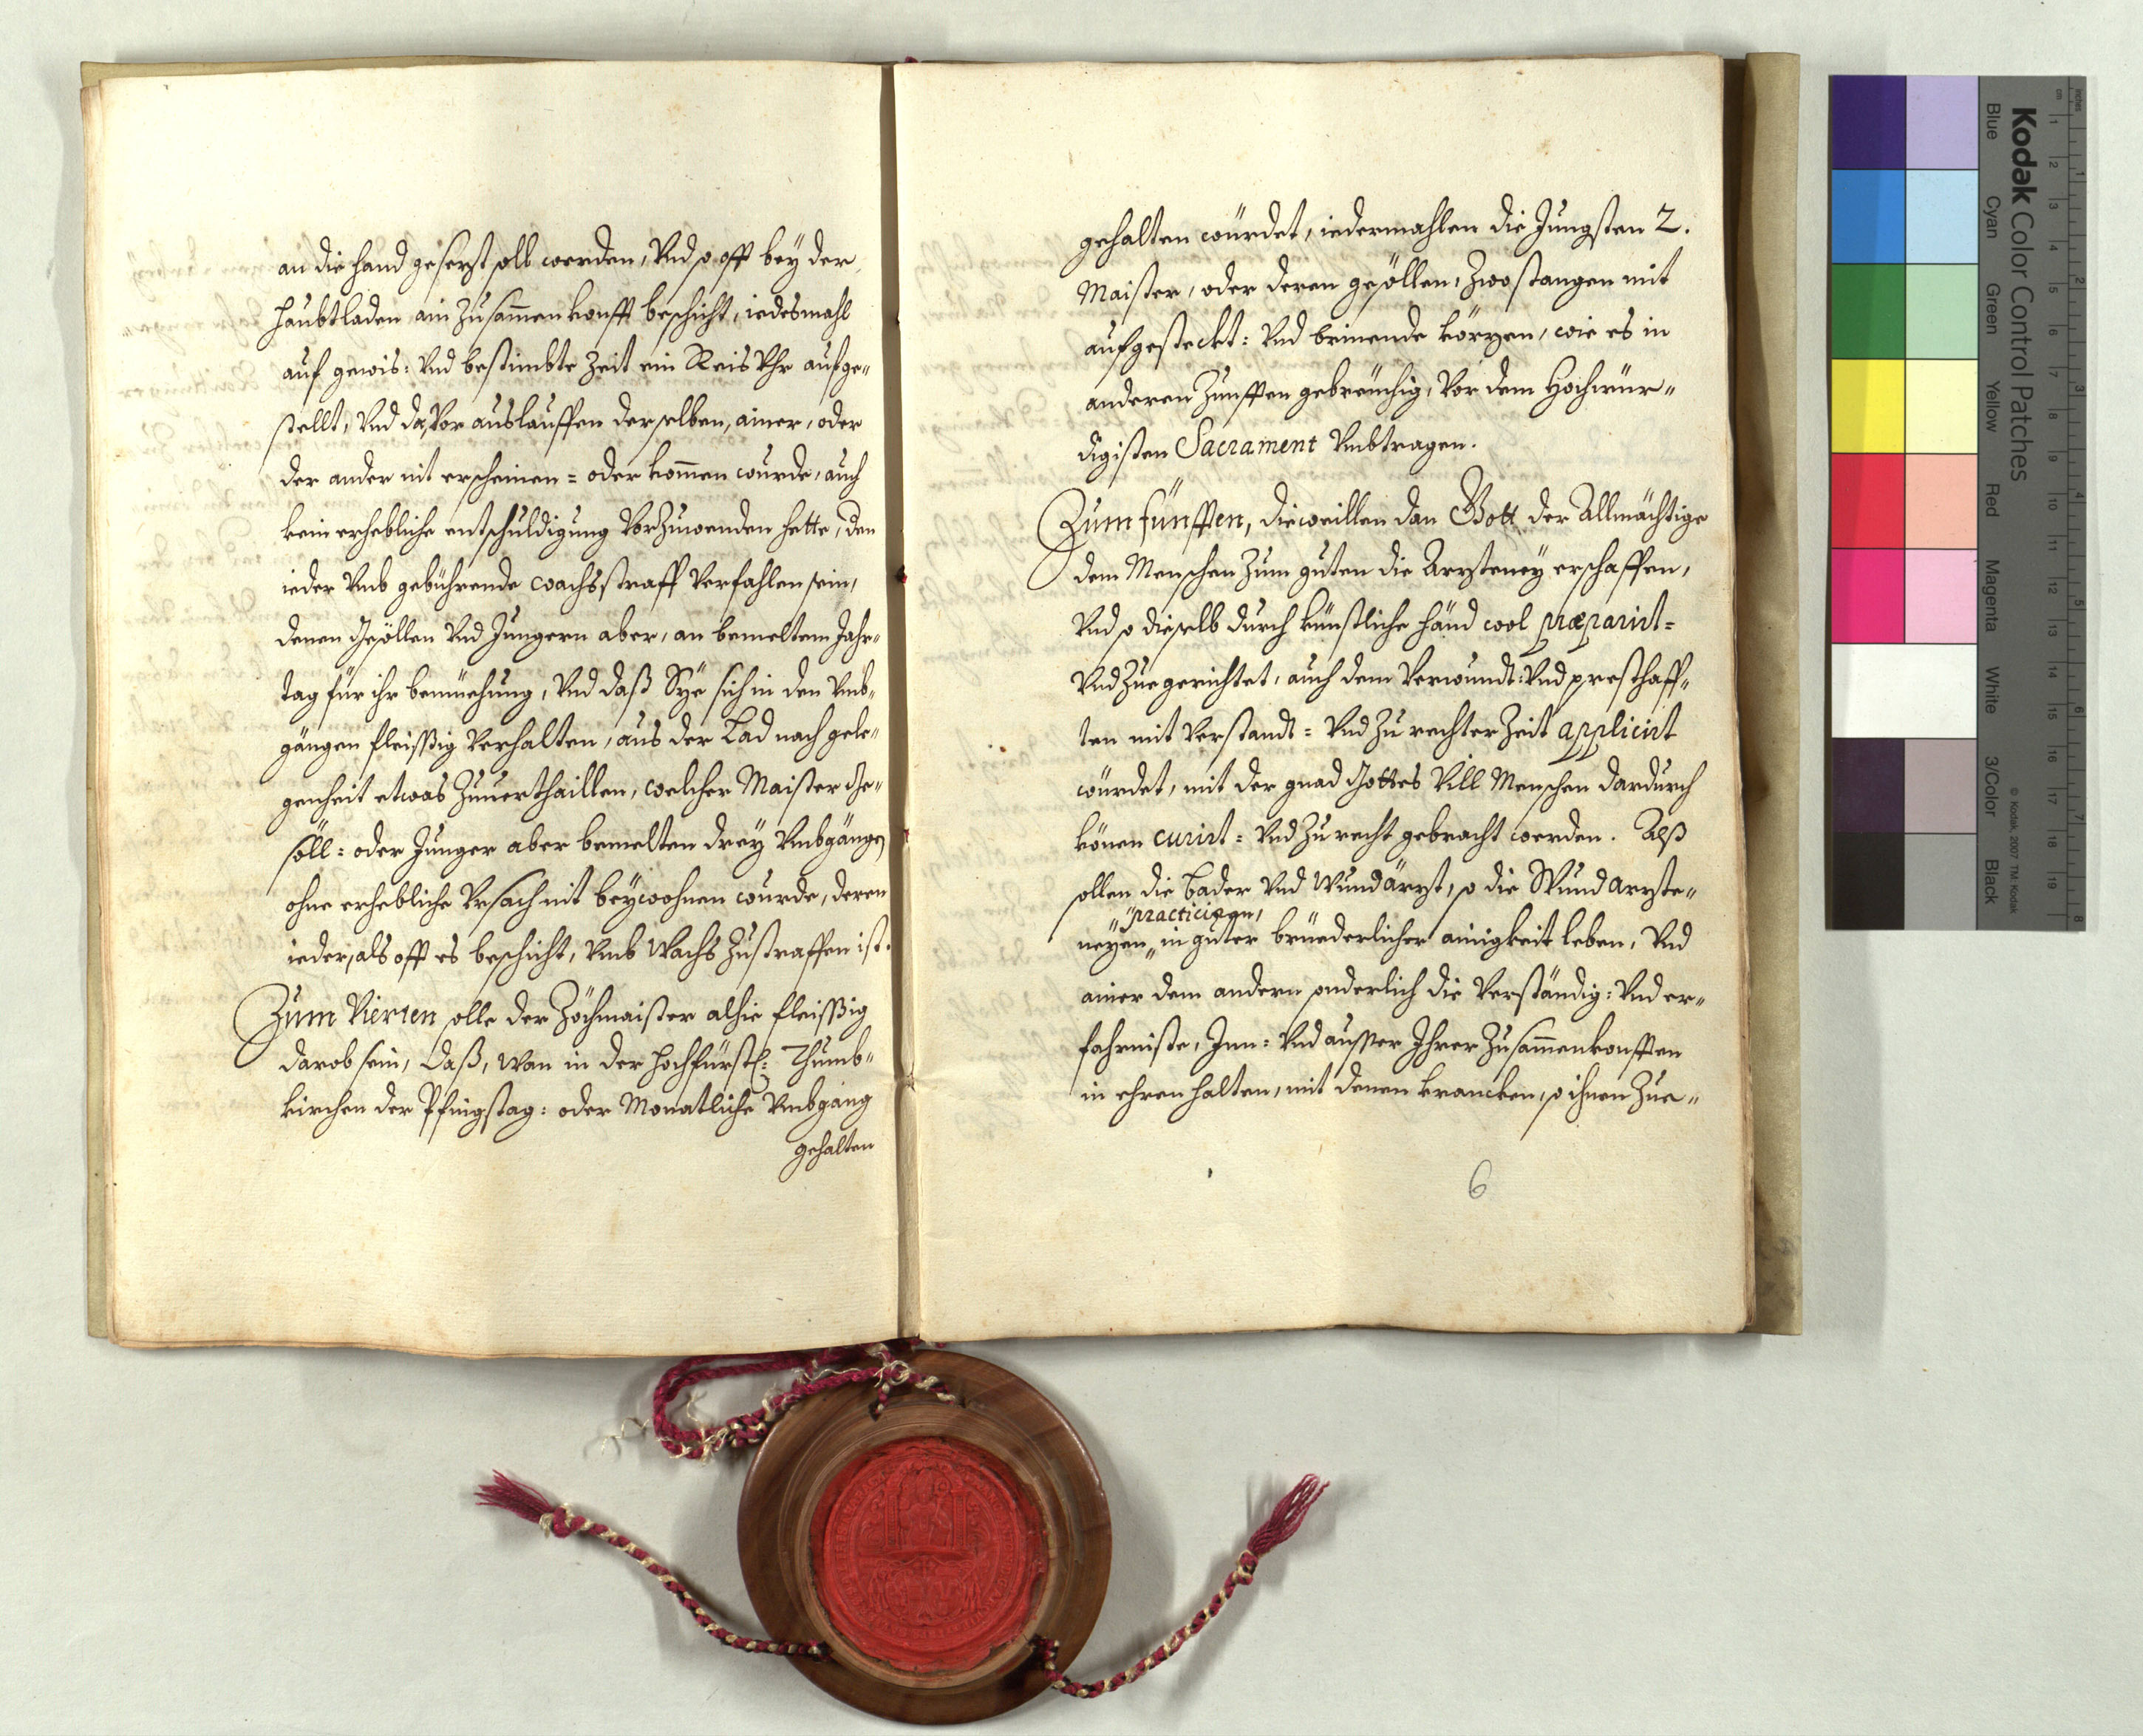 an die hand gesezt soll werden, Vnd so offt bey der
haubtladen ain Zusam̄enkonfft beschicht, iedesmahl
auf gewis: Vnd bestimbte Zeit ein Reis Vhr aufge„
stellt, Vnd da, Vor auslauffen derselben, ainer, oder
der ander nit erscheinen = oder kom̄en wurde, auch
kein erhebliche entschuldigung VorZuwenden hette, den
ieder Vmb gebührende wachsstraff Verfahlen sein,
denen Gsöllen Vnd Jungern aber, an bemeltem Jahr„
tag für ihr bemüehung, Vnd daß Sye sich in den Vmb„
gängen fleissig Verhalten, aus der Lad nach gele„
genheit etwas Zuuerthaillen, welcher Maister Ge„
söll = oder Junger aber bemelten drey Vmbgängen
ohne erhebliche Vrsach nit beywohnen wurde, deren
ieder, als offt es beschicht, Vmb Wachs Zustraffen ist.
Zum Vierten solle der Zöchmaister alhie fleissig
darob sein, Daß, Wan in der hochfürstl: Thumb„
kirchen der Pfingstag: oder Monatliche Vmbgang
gehalten
gehalten würdet, iedermahlen die Jungsten 2.
Maister, oder deren gsöllen, Zwo stangen mit
aufgesteckt: Vnd brinende körzen, wie es in
anderen Zunfften gebreüchig, Vor dem Hochwür„
digisten Sacrament Vmbtragen.
Zum fünfften, dieweillen dan Gott der Allmächtige
dem Menschen Zum guten die Arzteney erschaffen,
Vnd so dieselb durch künstliche händ wol præparirt=
Vnd Zuegerichtet, auch dem Verwundt: Vnd presthaff„
ten mit Verstandt = Vnd Zu rechter Zeit applicirt
würdet, mit der gnad Gottes Vill Menschen dardurch
könen curirt = Vnd Zu recht gebracht werden. Alß
sollen die Bader Vnd Wundärzt, so die Wund Arzte„
practiciren,
neyen„ in guter brüederlicher ainigkeit leben, Vnd
ainer dem andern sonderlich die Verständig: Vnd er„
fahrniste, Inn: Vnd ausser Ihrer Zusam̄enkonfften
in ehren halten, mit denen krancken, so ihnen Zue„
6
Kodak Color Control Patches
Blue Cyan Green Yellow Red Magenta White 3/Color Black
© Kodak, 2007 TM: Kodak
inches 1 2 3 4 5 6 7 8
cm 1 2 3 4 5 6 7 8 9 10 11 12 13 14 15 16 17 18 19